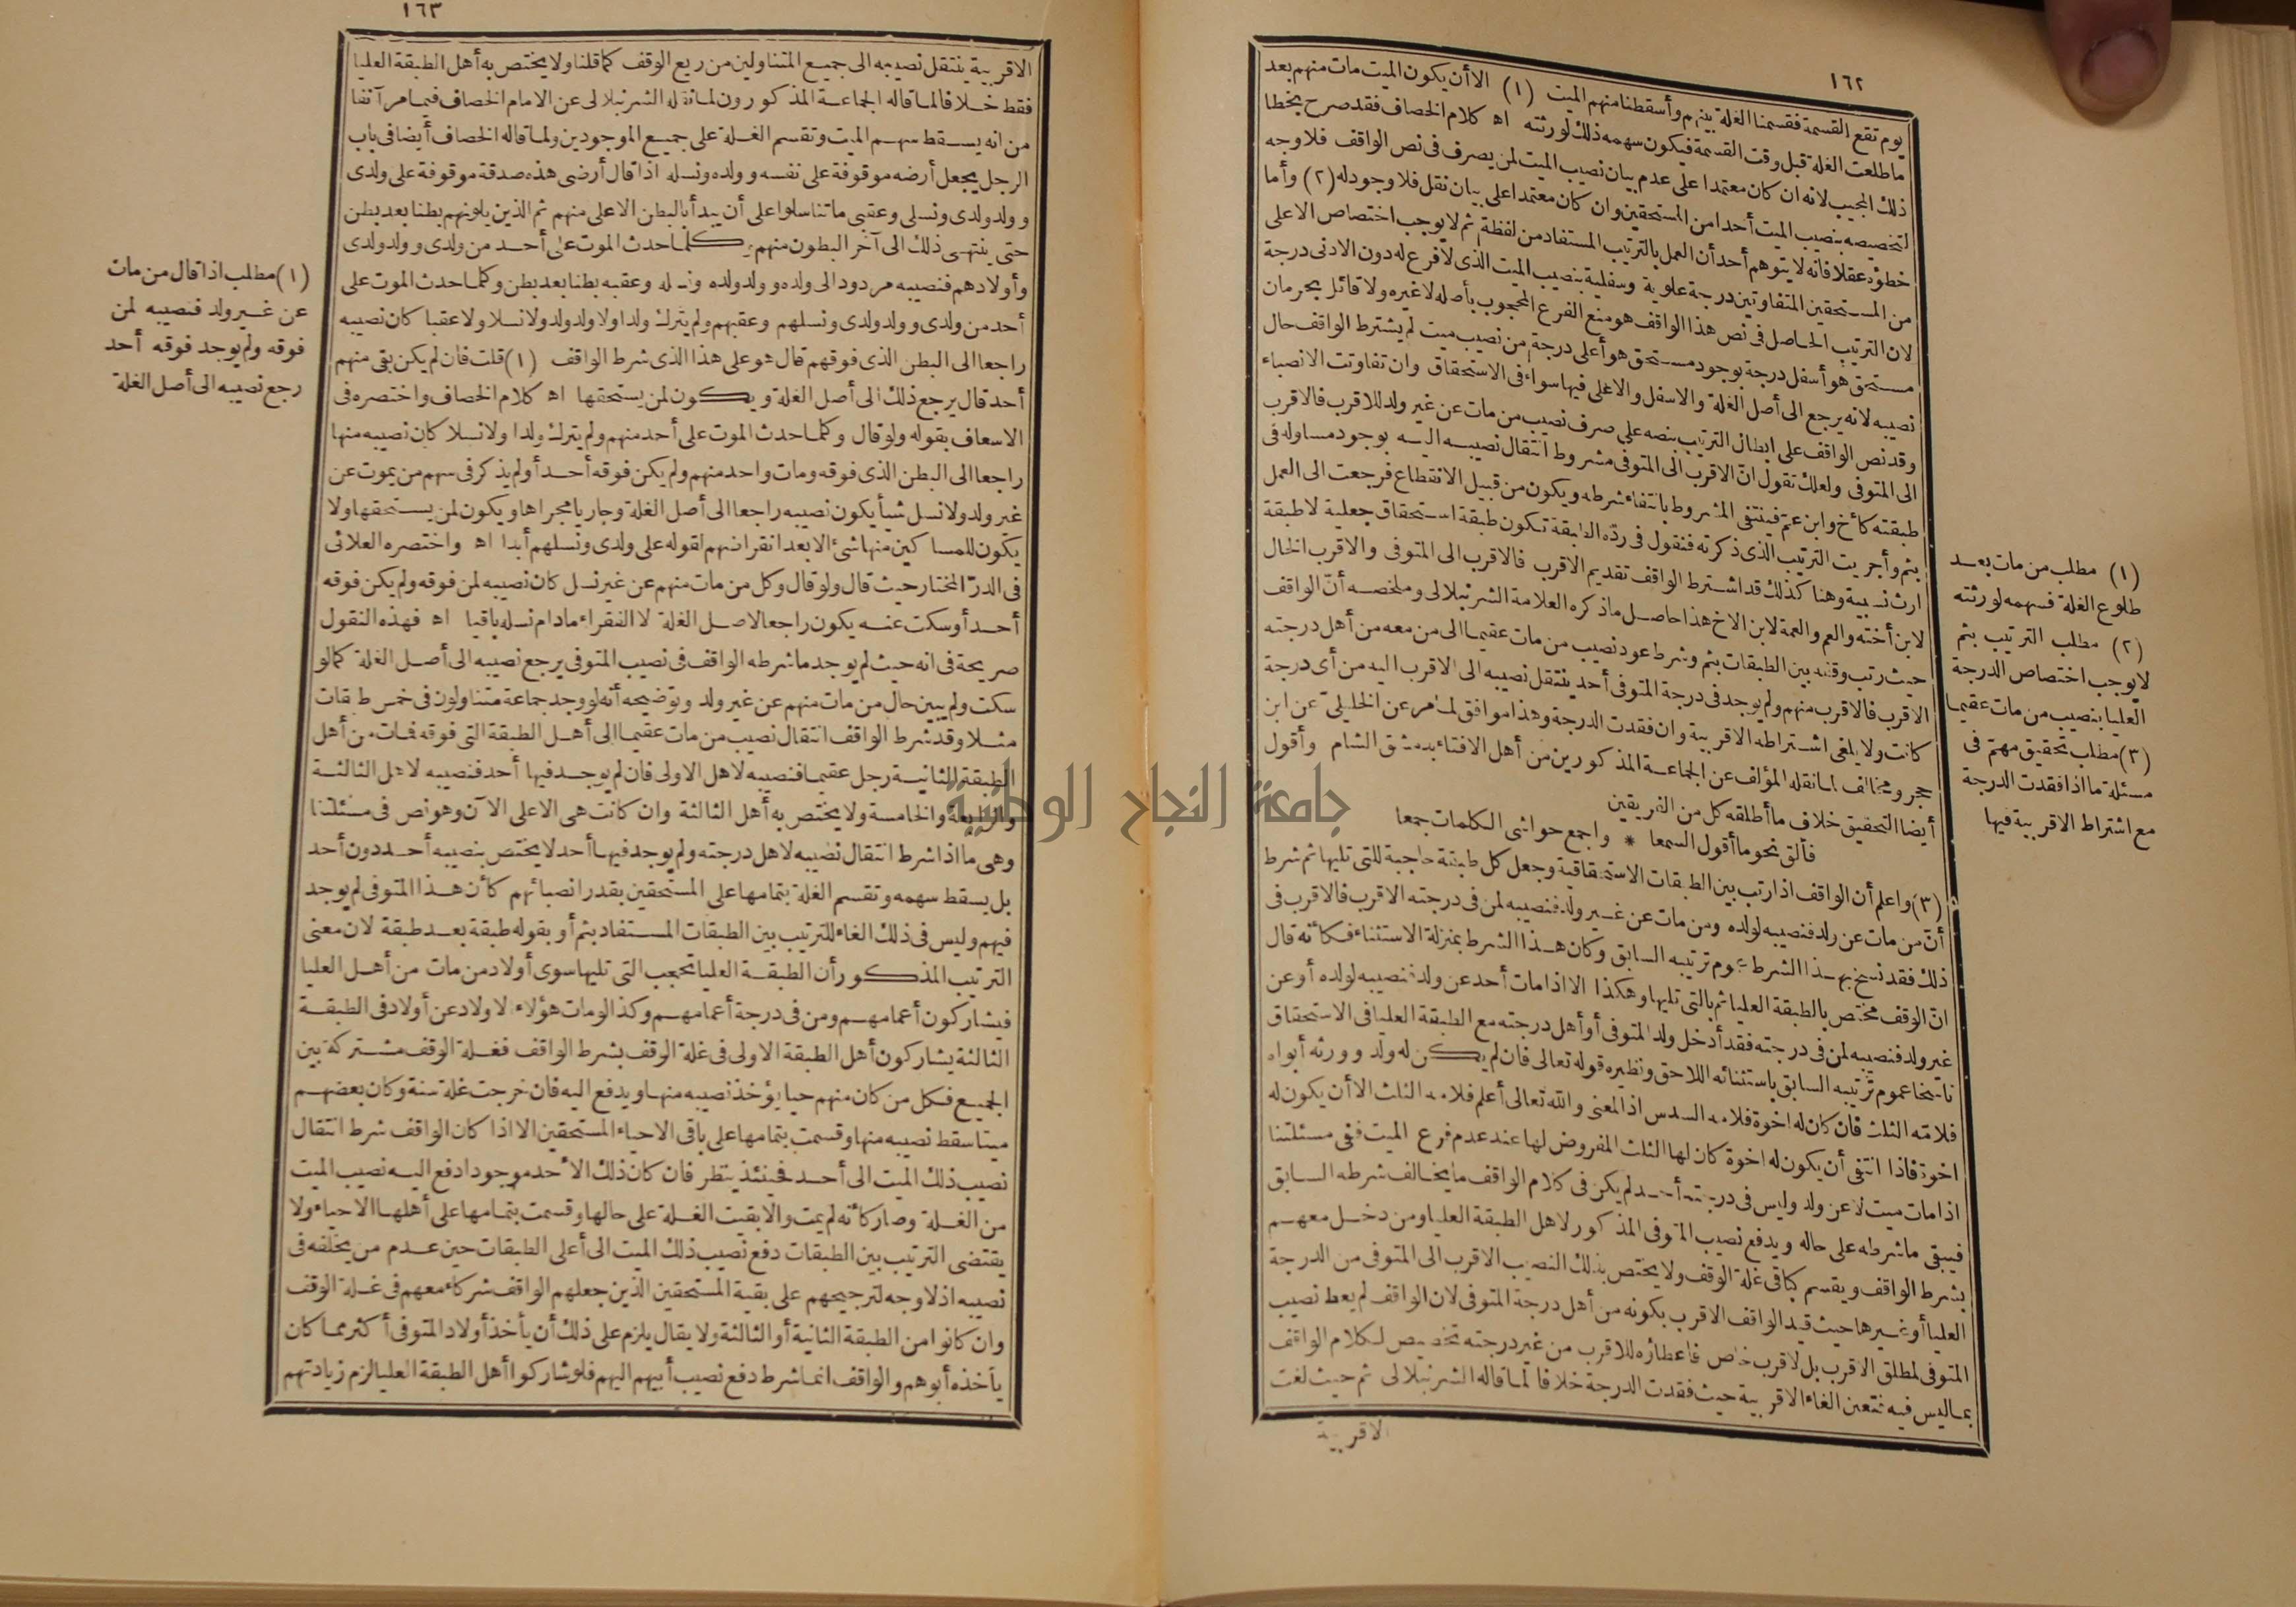 ١٦٢
يوم تقع القسمة فقسمنا الغلة بينهم وأسقطنا منهم الميت (١) الا أن يكون الميت مات منهم بعد
ما طلعت الغلة قبل وقت القسمة فيكون سهمه ذلك لورثته اه كلام الخصاف فقد صرح بخطا
ذلك المجيب لانه ان كان معتمدا على عدم بيان نصيب الميت لمن يصرف فى نص الواقف فلا وجه
لتخصيصه بنصيب الميت أحدا من المستحقين وان كان معتمدا على بيان نقل فلا وجود له (٢) وأما
خطؤه عقلا فانه لا يتوهم أحد أن العمل بالترتيب المستفاد من لفظة ثم لا يوجب اختصاص الاعلى
من المستحقين المتفاوتين درجة علوية وسفلية بنصيب الميت الذى لا فرع له دون الادنى درجة
لان الترتيب الحاصل فى نص هذا الواقف هو منع الفرع المحجوب بأصله لا غيره ولا قائل بحرمان
مستحق هو أسفل درجة بوجود مستحق هو أعلى درجة من نصيب ميت لم يشترط الواقف حال
نصيبه لانه يرجع الى أصل الغلة والاسفل والاعلى فيها سواء فى الاستحقاق وان تفاوتت الانصباء
وقد نص الواقف على ابطال الترتيب بنصه على صرف نصيب من مات عن غير ولد للاقرب فالاقرب
الى المتوفى ولعلك تقول انّ الاقرب الى المتوفى مشروط انتقال نصيبه اليه بوجود مساو له فى
طبقته كأخ وابن عم فينتفى المشروط بانتفاء شرطه ويكون من قبيل الانقطاع فرجعت الى العمل
بثم وأجريت الترتيب الذى ذكرته فنقول فى ردّه الطبقة تكون طبقة استحقاق جعلية لا طبقة
ارث نسبية وهنا كذلك قد اشترط الواقف تقديم الاقرب فالاقرب الى المتوفى والاقرب الخال
لابن أخته والعم والعمة لابن الاخ هذا حاصل ما ذكره العلامة الشرنبلالى وملخصه أنّ الواقف
حيث رتب وقفه بين الطبقات بثم وشرط عود نصيب من مات عقيما الى من معه من أهل درجته
الاقرب فالاقرب منهم ولم يوجد فى درجة المتوفى أحد ينتقل نصيبه الى الاقرب اليه من أى درجة
كانت ولا يلغى اشتراطه الاقربية وان فقدت الدرجة وهذا موافق لما مر عن الخليلى عن ابن
حجر ومخالف لما نقله المؤلف عن الجماعة المذكورين من أهل الافتاء بدمشق الشام وأقول
أيضا التحقيق خلاف ما أطلقه كل من الفريقين
فألق نحو ما أقول السمعا * واجمع حواشى الكلمات جمعا
(٣) واعلم أن الواقف اذا رتب بين الطبقات الاستحقاقية وجعل كل طبقة حاجبة للتى تليها ثم شرط
أنّ من مات عن ولد فنصيبه لولده ومن مات عن غير ولد فنصيبه لمن فى درجته الاقرب فالاقرب فى
ذلك فقد نسخ بهذا الشرط عموم ترتيبه السابق وكان هذا الشرط بمنزلة الاستثناء فكأنه قال
انّ الوقف مختص بالطبقة العليا ثم بالتى تليها وهكذا الا اذا مات أحد عن ولد فنصيبه لولده أو عن
غير ولد فنصيبه لمن فى درجته فقد أدخل ولد المتوفى أو أهل درجته مع الطبقة العليا فى الاستحقاق
ناسخا عموم ترتيبه السابق باستثنائه اللاحق ونظيره قوله تعالى فان لم يكن له ولد وورثه أبواه
فلامّه الثلث فان كان له اخوة فلامه السدس اذ المعنى والله تعالى أعلم فلامه الثلث الا أن يكون له
اخوة فاذا انتفى أن يكون له اخوة كان لها الثلث المفروض لها عند عدم فرع الميت ففى مسئلتنا
اذا مات ميت لا عن ولد وليس فى درجته أحد لم يكن فى كلام الواقف ما يخالف شرطه السابق
فيبقى ما شرطه على حاله ويدفع نصيب المتوفى المذكور لاهل الطبقة العليا ومن دخل معهم
بشرط الواقف ويقسم كباقى غلة الوقف ولا يختص بذلك النصيب الاقرب الى المتوفى من الدرجة
العليا أو غيرها حيث قيد الواقف الاقرب بكونه من أهل درجة المتوفى لان الواقف لم يعط نصيب
المتوفى لمطلق الاقرب بل لاقرب خاص فاعطاؤه للاقرب من غير درجته تخصيص لكلام الواقف
بما ليس فيه فتعين الغاء الاقربية حيث فقدت الدرجة خلافا لما قاله الشرنبلالى ثم حيث لغت
الاقربية
(١) مطلب من مات بعد
طلوع الغلة فسهمه لورثته
(٢) مطلب الترتيب بثم
لا يوجب اختصاص الدرجة
العليا بنصيب من مات عقيما
(٣) مطلب تحقيق مهمّ فى
مسئلة ما اذا فقدت الدرجة
مع اشتراط الاقربية فيها
١٦٣
الاقربية ينتقل نصيبه الى جميع المتناولين من ريع الوقف كما قلنا ولا يختص به أهل الطبقة العليا
فقط خلافا لما قاله الجماعة المذكورون لما نقله الشرنبلالى عن الامام الخصاف فيما مر آنفا
من انه يسقط سهم الميت وتقسم الغلة على جميع الموجودين ولما قاله الخصاف أيضا فى باب
الرجل يجعل أرضه موقوفة على نفسه وولده ونسله اذا قال أرضى هذه صدقة موقوفة على ولدى
وولد ولدى ونسلى وعقبى ما تناسلوا على أن يبدأ بالبطن الاعلى منهم ثم الذين يلونهم بطنا بعد بطن
حتى ينتهى ذلك الى آخر البطون منهم وكلما حدث الموت على أحد من ولدى وولد ولدى
وأولادهم فنصيبه مردود الى ولده وولد ولده ونسله وعقبه بطنا بعد بطن وكلما حدث الموت على
أحد من ولدى وولد ولدى ونسلهم وعقبهم ولم يترك ولدا ولا ولد ولد ولا نسلا ولا عقبا كان نصيبه
راجعا الى البطن الذى فوقهم قال هو على هذا الذى شرط الواقف (١) قلت فان لم يكن بقى منهم
أحد قال يرجع ذلك الى أصل الغلة ويكون لمن يستحقها اه كلام الخصاف واختصره فى
الاسعاف بقوله ولو قال وكلما حدث الموت على أحد منهم ولم يترك ولدا ولا نسلا كان نصيبه منها
راجعا الى البطن الذى فوقه ومات واحد منهم ولم يكن فوقه أحد أو لم يذكر فى سهم من يموت عن
غير ولد ولا نسل شيأ يكون نصيبه راجعا الى أصل الغلة وجاريا مجراها ويكون لمن يستحقها ولا
يكون للمساكين منها شئ الا بعد انقراضهم لقوله على ولدى ونسلهم أبدا اه واختصره العلائى
فى الدرّ المختار حيث قال ولو قال وكل من مات منهم عن غير نسل كان نصيبه لمن فوقه ولم يكن فوقه
أحد أو سكت عنه يكون راجعا لاصل الغلة لا الفقراء ما دام نسله باقيا اه فهذه النقول
صريحة فى انه حيث لم يوجد ما شرطه الواقف فى نصيب المتوفى يرجع نصيبه الى أصل الغلة كما لو
سكت ولم يبين حال من مات منهم عن غير ولد وتوضيحه أنه لو وجد جماعة متناولون فى خمس طبقات
مثلا وقد شرط الواقف انتقال نصيب من مات عقيما الى أهل الطبقة التى فوقه فمات من أهل
الطبقة الثانية رجل عقيما فنصيبه لاهل الاولى فان لم يوجد فيها أحد فنصيبه لاهل الثالثة
والرابعة والخامسة ولا يختص به أهل الثالثة وان كانت هى الاعلى الآن وهو نص فى مسئلتنا
وهى ما اذا شرط انتقال نصيبه لاهل درجته ولم يوجد فيها أحد لا يختص بنصيبه أحد دون أحد
بل يسقط سهمه وتقسم الغلة بتمامها على المستحقين بقدر انصبائهم كأن هذا المتوفى لم يوجد
فيهم وليس فى ذلك الغاء للترتيب بين الطبقات المستفاد بثم أو بقوله طبقة بعد طبقة لان معنى
الترتيب المذكور أن الطبقة العليا تحجب التى تليها سوى أولاد من مات من أهل العليا
فيشاركون أعمامهم ومن فى درجة أعمامهم وكذا لو مات هؤلاء الاولاد عن أولاد فى الطبقة
الثالثة يشاركون أهل الطبقة الاولى فى غلة الوقف بشرط الواقف فغلة الوقف مشتركة بين
الجميع فكل من كان منهم حيا يؤخذ نصيبه منها ويدفع اليه فان خرجت غلة سنة وكان بعضهم
ميتا سقط نصيبه منها وقسمت بتمامها على باقى الاحياء المستحقين الا اذا كان الواقف شرط انتقال
نصيب ذلك الميت الى أحد فحينئذ ينظر فان كان ذلك الأحد موجودا دفع اليه نصيب الميت
من الغلة وصار كأنه لم يمت والا بقيت الغلة على حالها وقسمت بتمامها على أهلها الاحياء ولا
يقتضى الترتيب بين الطبقات دفع نصيب ذلك الميت الى أعلى الطبقات حين عدم من يخلفه فى
نصيبه اذ لا وجه لترجيحهم على بقية المستحقين الذين جعلهم الواقف شركاء معهم فى غلة الوقف
وان كانوا من الطبقة الثانية أو الثالثة ولا يقال يلزم على ذلك أن يأخذ أولاد المتوفى أكثر مما كان
يأخذه أبوهم والواقف انما شرط دفع نصيب أبيهم اليهم فلو شاركوا أهل الطبقة العليا لزم زيادتهم
(١) مطلب اذا قال من مات
عن غير ولد فنصيبه لمن
فوقه ولم يوجد فوقه أحد
رجع نصيبه الى أصل الغلة
جامعة النجاح الوطنية